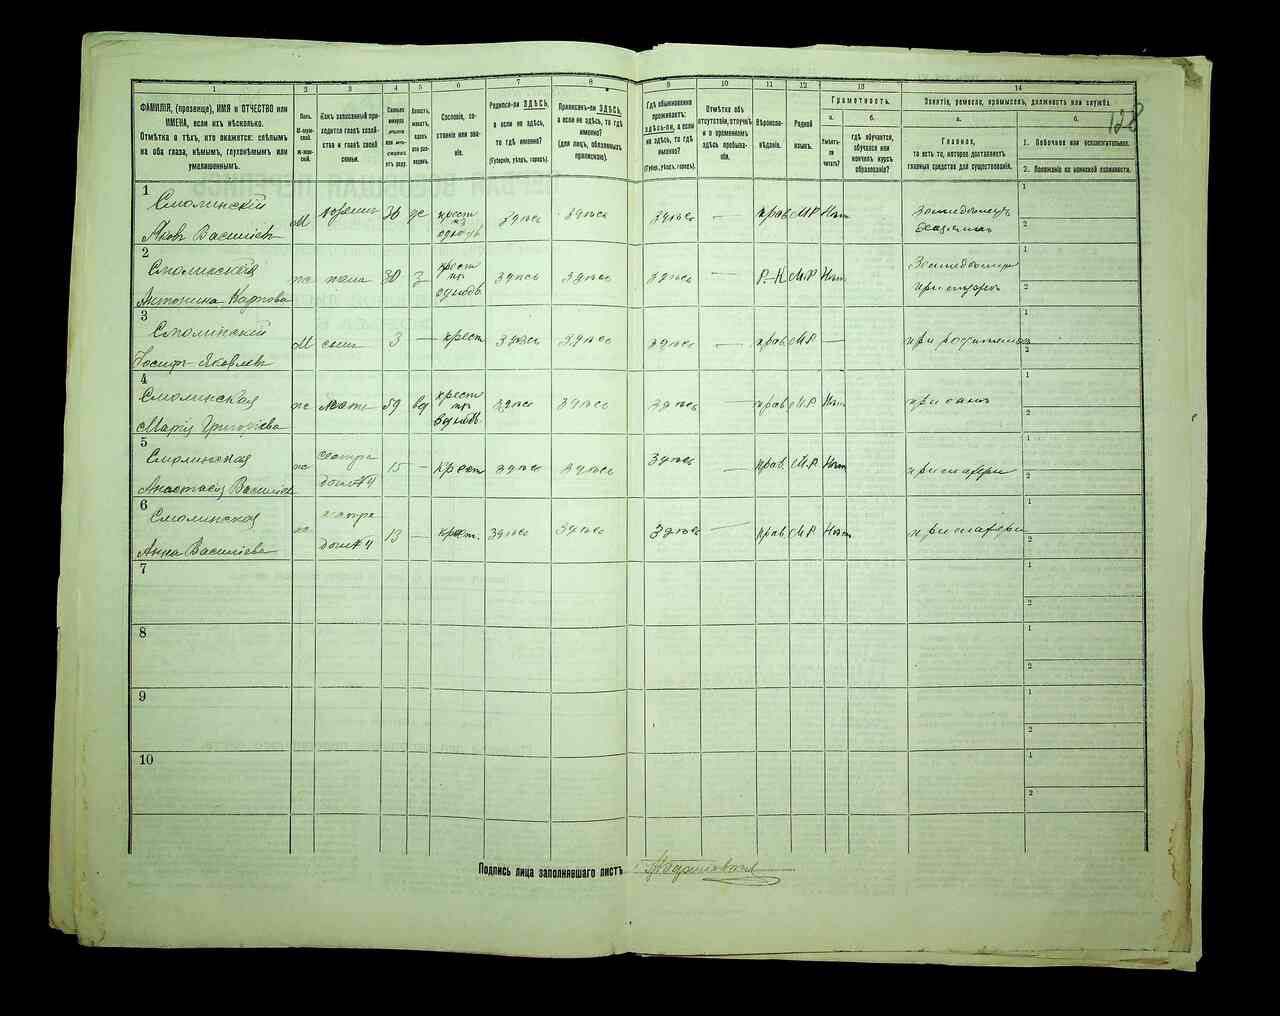 128
1
2
3
4
5
6
7
8
9
10
11
12
13
14
ФАМИЛІЯ, (прозвище), ИМЯ и ОТЧЕСТВО или
ИМЕНА, если ихъ нѣсколько.
Отмѣтка о тѣхъ, кто окажется: слѣпымъ
на оба глаза, нѣмымъ, глухонѣмымъ или
умалишеннымъ.
Полъ.
М-муж-
ской.
ж-жен-
скій.
Какъ записанный при-
ходится главѣ хозяй-
ства и главѣ своей
семьи.
Сколько
минуло
лѣтъ
или мѣс-
яцевъ
отъ роду.
Холостъ,
женатъ,
вдовъ
или раз-
веденъ.
Сословіе, со-
стояніе или зва-
ніе.
Родился-ли ЗДѢСЬ,
а если не здѣсь,
то гдѣ именно?
(Губернія, уѣздъ, городъ).
Приписанъ-ли ЗДѢСЬ,
а если не здѣсь, то гдѣ
именно?
(для лицъ, обязанныхъ
припискою).
Гдѣ обыкновенно
проживаетъ:
здѣсь-ли, а если
не здѣсь, то гдѣ
именно?
(Губер., уѣздъ, городъ).
Отмѣтка объ
отсутствіи, отлучкѣ
и о временномъ
здѣсь пребыва-
ніи.
Вѣроиспо-
вѣданіе.
Родной
языкъ.
Грамотность.
а.
Умѣетъ-
ли
читать?
б.
гдѣ обучается,
обучался или
кончилъ курсъ
образованія?
Занятіе, ремесло, промыселъ, должность или служба.
а.
Главное,
то есть то, которое доставляетъ
главныя средства для существованія.
б.
1. Побочное или вспомогательное.
2. Положеніе по воинской повинности.
1
Смолинскій
Яковъ Василіевъ
М хозяинъ 36 ж крест
из
однодв здѣсь здѣсь здѣсь — прав М.Р Нѣт Земледѣлецъ
1
2
2
Смолинская
Антонина Карпова
ж жена 30 з крест
из
однодв здѣсь здѣсь здѣсь — Р.-К М.Р Нѣт
при мужѣ
1
2
3
Смолинскій
Іосифъ Яковлевъ
М сынъ 3 — крест здѣсь здѣсь здѣсь — прав М.Р — при родителяхъ
1
2
4
Смолинская
Марія Григоріева
ж мать 59 вд крест
из
однодв здѣсь здѣсь здѣсь — прав М.Р Нѣт при сынѣ
1
2
5
Смолинская
Анастасія Василіев
ж сестра
дом№1 15 — крест здѣсь здѣсь здѣсь — прав. М.Р Нѣт при матери
1
2
6
Смолинская
Анна Василіева
ж сестра 13 — крест. здѣсь здѣсь здѣсь — прав. М.Р Нѣт при матери
1
2
7
1
2
8
1
2
9
1
2
10
1
2
Подпись лица заполнявшаго листъ